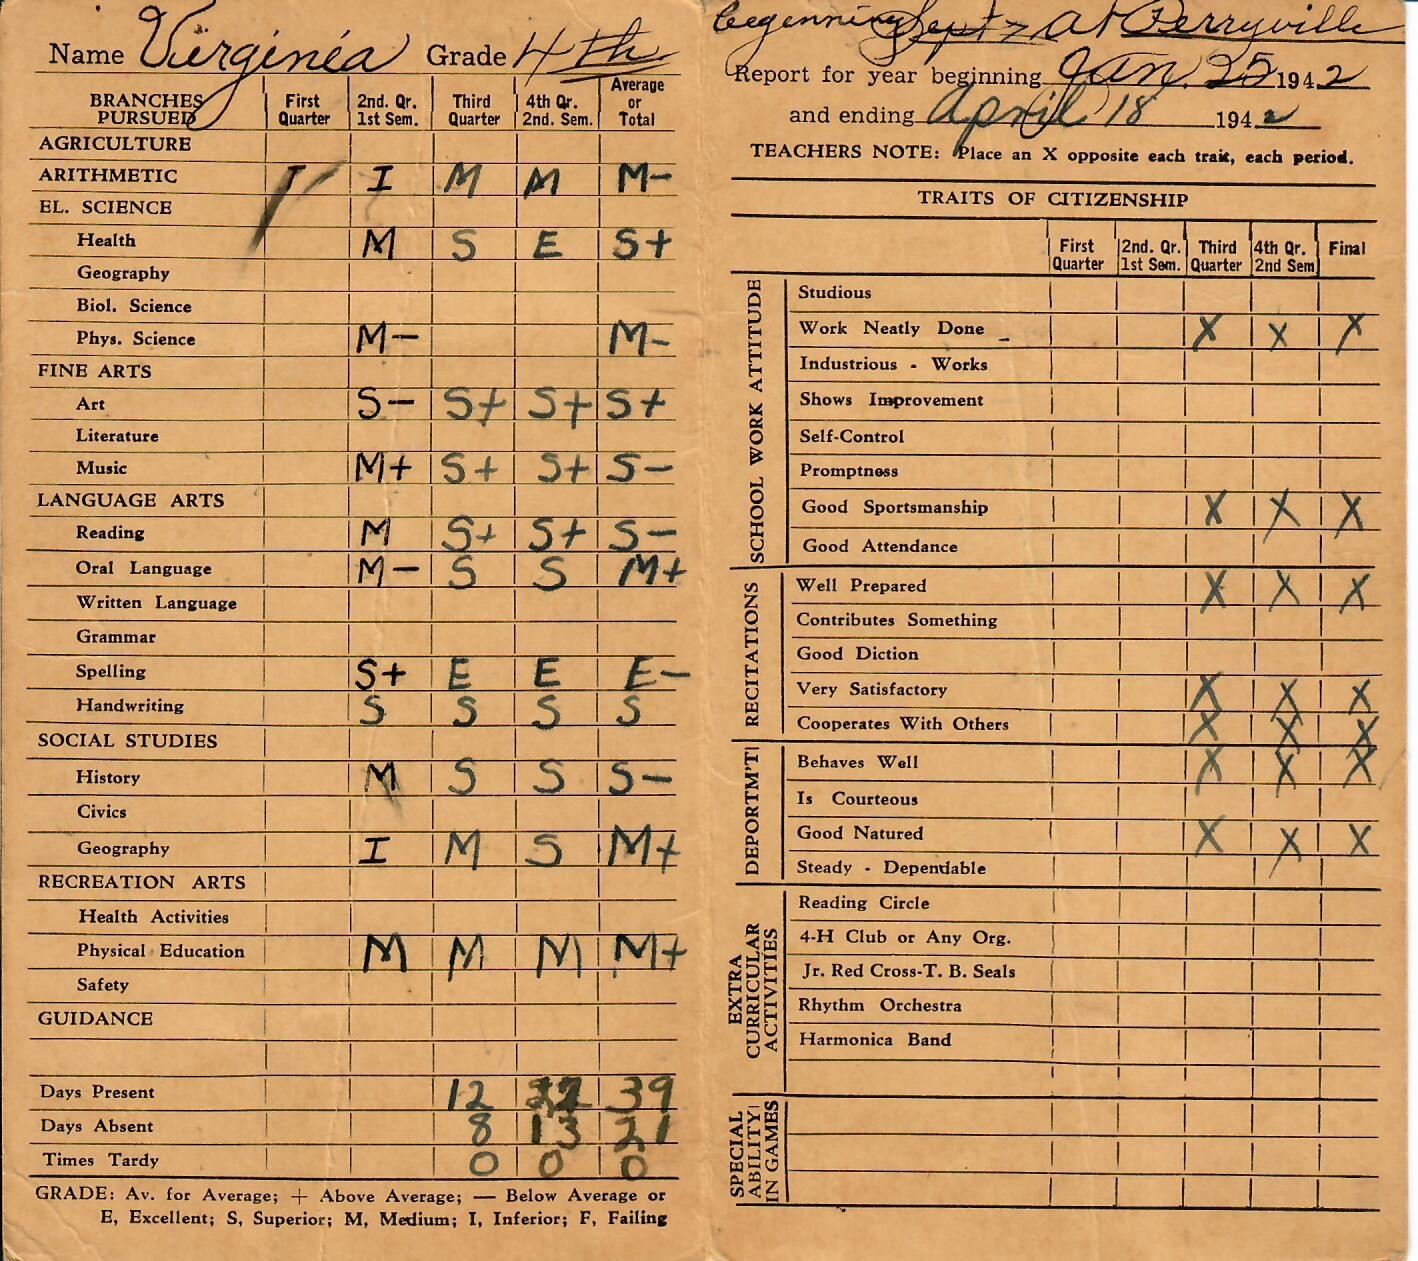 Name Virginia Grade 4th
BRANCHES PURSUED First Quarter 2nd. Qr. 1st Sem. Third Quarter 4th Qr. 2nd. Sem. Average or Total
AGRICULTURE
ARITHMETIC I I M M M-
EL. SCIENCE
Health M S E S+
Geography
Biol. Science
Phys. Science M- M-
FINE ARTS
Art S- S+ S+ S+
Literature
Music M+ S+ S+ S-
LANGUAGE ARTS
Reading M S+ S+ S-
Oral Language M- S S M+
Written Language
Grammar
Spelling S+ E E E-
Handwriting S S S S
SOCIAL STUDIES
History M S S S-
Civics
Geography I M S M+
RECREATION ARTS
Health Activities
Physical Education M M M M+
Safety
GUIDANCE
Days Present 12 27 39
Days Absent 8 13 21
Times Tardy 0 0 0
GRADE: Av. for Average; + Above Average; — Below Average or
E, Excellent; S, Superior; M, Medium; I, Inferior; F, Failing
begenning Sept at Perryville
Report for year beginning Jan. 25 1942
and ending April 18 1942
TEACHERS NOTE: Place an X opposite each trait, each period.
TRAITS OF CITIZENSHIP
First Quarter 2nd. Qr. 1st Sem. Third Quarter 4th Qr. 2nd Sem Final
SCHOOL WORK ATTITUDE
Studious
Work Neatly Done X X X
Industrious - Works
Shows Improvement
Self-Control
Promptness
Good Sportsmanship X X X
Good Attendance
RECITATIONS
Well Prepared X X X
Contributes Something
Good Diction
Very Satisfactory X X X
Cooperates With Others X X X
DEPORTM'T
Behaves Well X X X
Is Courteous
Good Natured X X X
Steady - Dependable
EXTRA CURRICULAR ACTIVITIES
Reading Circle
4-H Club or Any Org.
Jr. Red Cross-T. B. Seals
Rhythm Orchestra
Harmonica Band
SPECIAL ABILITY IN GAMES